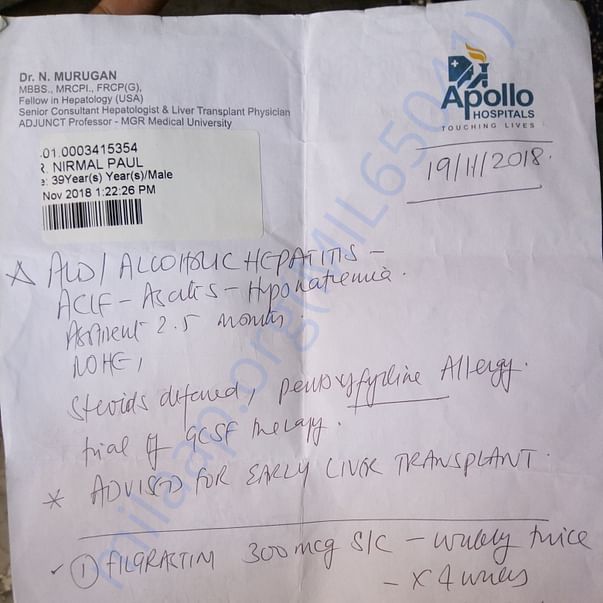 Dr. N. MURUGAN
MBBS., MRCPI., FRCP(G),
Fellow in Hepatology (USA)
Senior Consultant Hepatologist & Liver Transplant Physician
ADJUNCT Professor - MGR Medical University
Apollo
HOSPITALS
TOUCHING LIVES
.01.0003415354
R. NIRMAL PAUL
e: 39Year(s) Year(s)/Male
Nov 2018 1:22:26 PM
19/11/2018.
ALD / ALCOHOLIC HEPATITIS -
ACLF - Ascites - Hyponatremia.
2.5 months.
NOHE,
Steroids defered, pentoxyfylline Allergy.
trial of GCSF therapy.
* ADVISED FOR EARLY LIVER TRANSPLANT.
✓ ① FILGRASTIM 300 mcg S/C - weekly twice
- x 4 weeks
milaap.org(MIL65041)